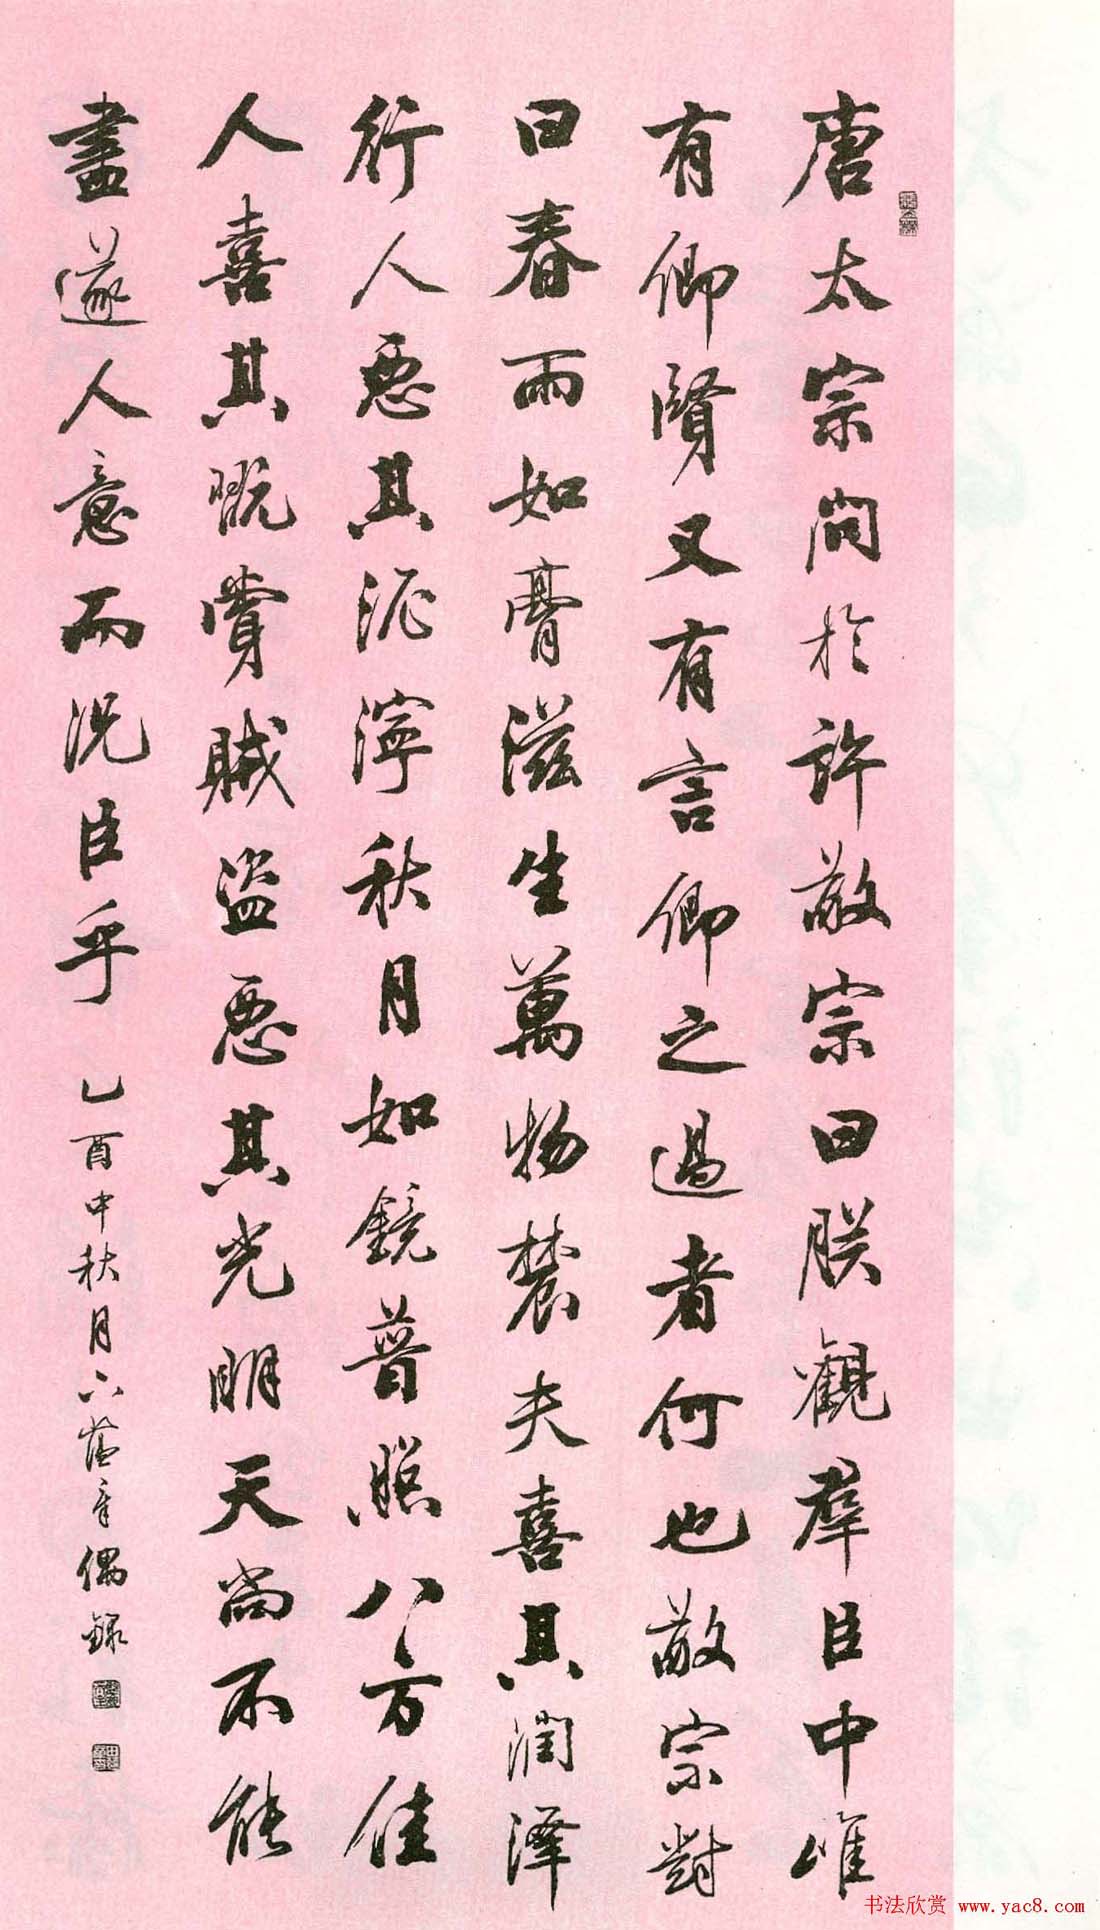 唐太宗問於許敬宗曰朕觀群臣中唯
有卿賢又有言卿之過者何也敬宗對
曰春雨如膏滋生萬物農夫喜其潤澤
行人惡其泥濘秋月如鏡普照八方佳
人喜其玩賞賊盜惡其光明天尚不能
盡遂人意而況臣乎
乙酉中秋月下蘊章偶錄
书法欣赏 www.yac8.com